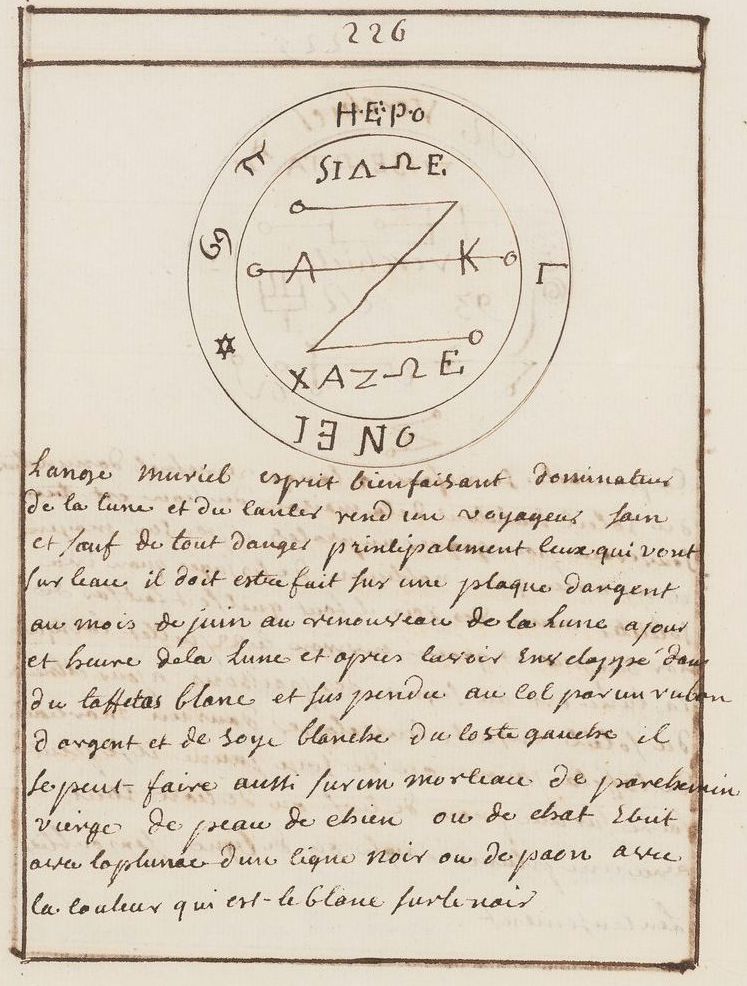 226
H·E·P·O
SIΔΩE
A K
Γ
XAZΩE
ONEI
Lange muriel esprit bienfaisant dominateur
de la lune et du cancer rend un voyageur sain
et sauf de tout danger principalement ceux qui vont
sur leau il doit estre fait sur une plaque dargent
au mois de juin au renouveau de la Lune a jour
et heure dela Lune et apres lavoir Enveloppé dans
du taffetas blanc et suspendu au col par un ruban
dargent et de soye blanche du coste gauche il
se peut faire aussi sur un morceau de parchemin
vierge de peau de chien ou de chat Ecrit
avec laplume dun cigne noir ou de paon avec
la couleur qui est le blanc sur le noir